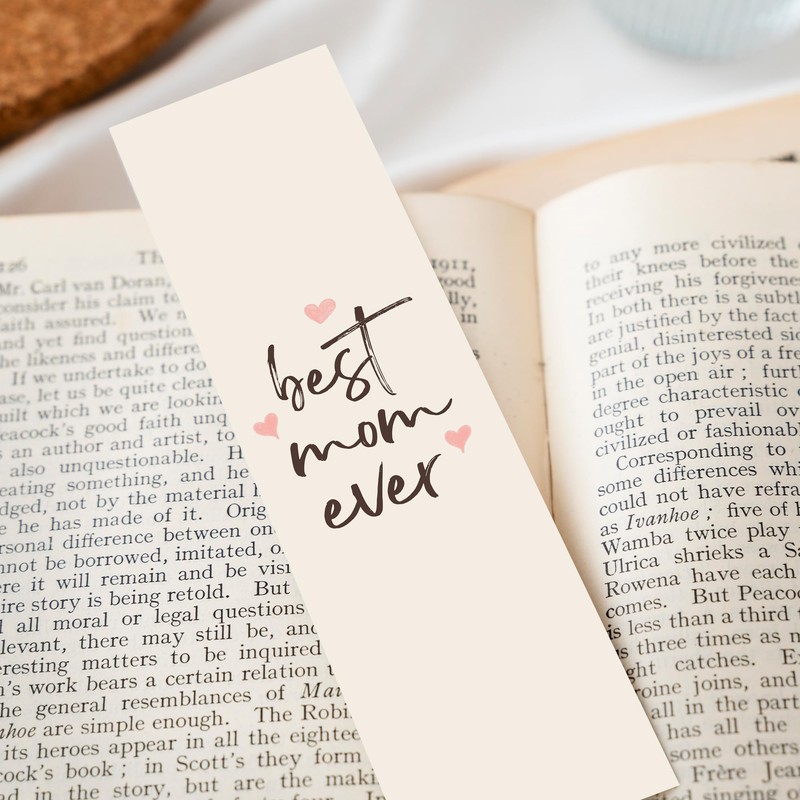 best
mom
ever
126
Th
Mr. Carl van Doran,
consider his claim to
faith assured. We n
and yet find question
the likeness and differe
If we undertake to do
ase, let us be quite clear
uilt which we are lookin
eacock's good faith unq
s an author and artist, to
also unquestionable. H
eating something, and he
dged, not by the material
e he has made of it. Orig
rsonal difference between on
nnot be borrowed, imitated, o
ere it will remain and be visi
ire story is being retold. But
all moral or legal questions
levant, there may still be, and
eresting matters to be inquired
n's work bears a certain relation t
he general resemblances of Mai
nhoe are simple enough. The Robi
its heroes appear in all the eightee
cock's book ; in Scott's they form
d in the story, but are the maki
In
1911,
good
lly,
in
to any more civilized
their knees before the
receiving his forgivene
In both there is a subtl
are justified by the fact
genial, disinterested sid
part of the joys of a fre
in the open air ; furth
degree characteristic o
ought to prevail ov
civilized or fashionabl
Corresponding to
some differences whi
could not have refra
as Ivanhoe ; five of h
Wamba twice play
Ulrica shrieks a Sa
Rowena have each
comes. But Peacoc
is less than a third t
s three times as n
ght catches. E
roine joins, and
all in the part
has all the
some others
Frère Jean
d singing o